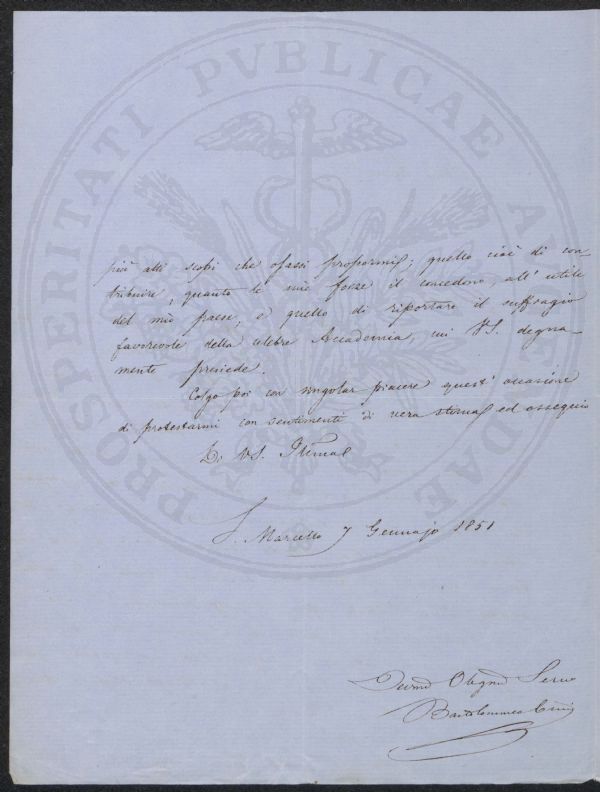 PROSPERITATI PVBLICAE AVGENDAE
più alti scopi che osassi propormi; quello cioè di con-
tribuire, quanto le mie forze il concedono, all' utile
del mio paese, e quello di riportare il suffragio
favorevole della celebre Accademia, cui VS. degna-
mente presiede.
Colgo poi con singolar piacere quest' occasione
di protestarmi con sentimenti di vera stima ed ossequio
Di VS. Illma
S. Marcello 7 Gennajo 1851
Devmo Obbgmo Servo
Bartolommeo Cini